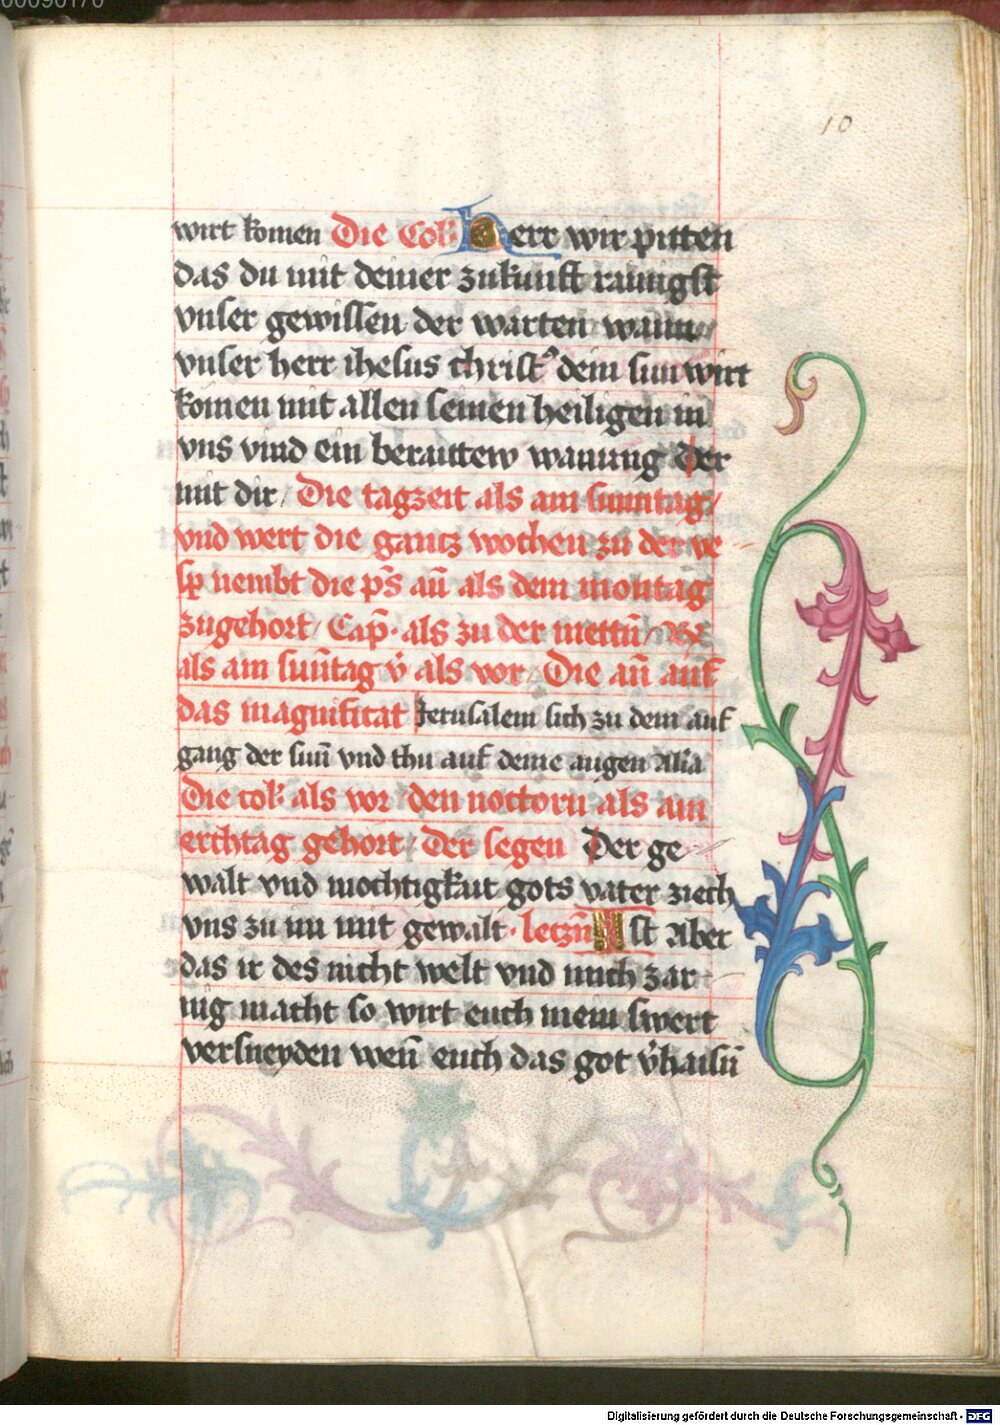 00090170
10
wirt komen Die Col· Herr wir pitten
das du mit deiner zukunfft rainigst
vnser gewissen der warten wann
vnser herr ihesus christ⁹ dein sun wirt
komen mit allen seinen heiligen in
vns vind ein beraittew wanung Der
mit dir / Die tagzeit als am sunntag /
vnd wert die gantz wochen zu der ve
sp nembt die ps̄ an̄ als dem montag
zugehort / Cap̄· als zu der mettn̄ /
als am sun̄tag v̄ als vor / Die an̄ auf
das magnificat Jerusalem sich zu dem auf
gang der sun̄ vnd thu auf deine augen Alīa
Die col· als vor den nocторn als am
erchtag gehort / Der segen Der ge
walt vnd mochtigkait gots vater ziech
vns zu im mit gewalt · letzn̄ Ist Aber
das ir des nicht welt vnd mich zar
nig macht so wirt euch mein swert
versneyden wen̄ euch das got v̄haisn̄
Digitalisierung gefördert durch die Deutsche Forschungsgemeinschaft - DFG